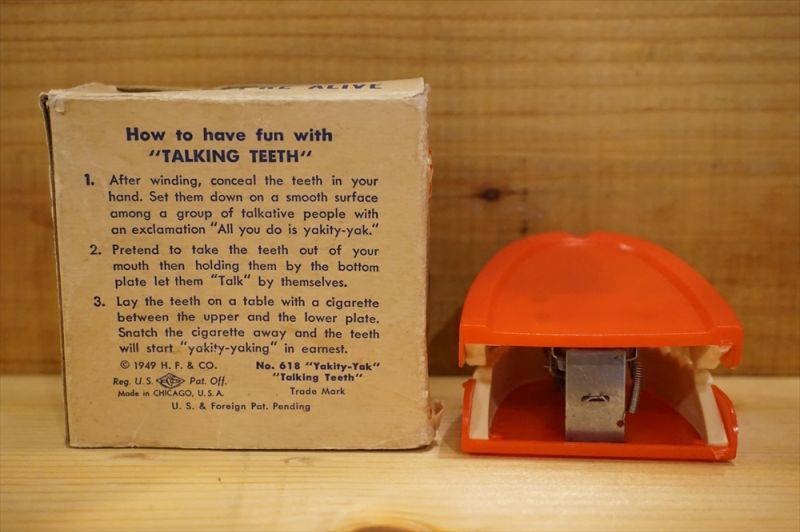 ALIVE
How to have fun with
"TALKING TEETH"
1. After winding, conceal the teeth in your
hand. Set them down on a smooth surface
among a group of talkative people with
an exclamation "All you do is yakity-yak."
2. Pretend to take the teeth out of your
mouth then holding them by the bottom
plate let them "Talk" by themselves.
3. Lay the teeth on a table with a cigarette
between the upper and the lower plate.
Snatch the cigarette away and the teeth
will start "yakity-yaking" in earnest.
© 1949 H. F. & CO. No. 618 "Yakity-Yak"
"Talking Teeth"
Reg. U. S. Pat. Off. Trade Mark
Made in CHICAGO, U. S. A.
U. S. & Foreign Pat. Pending